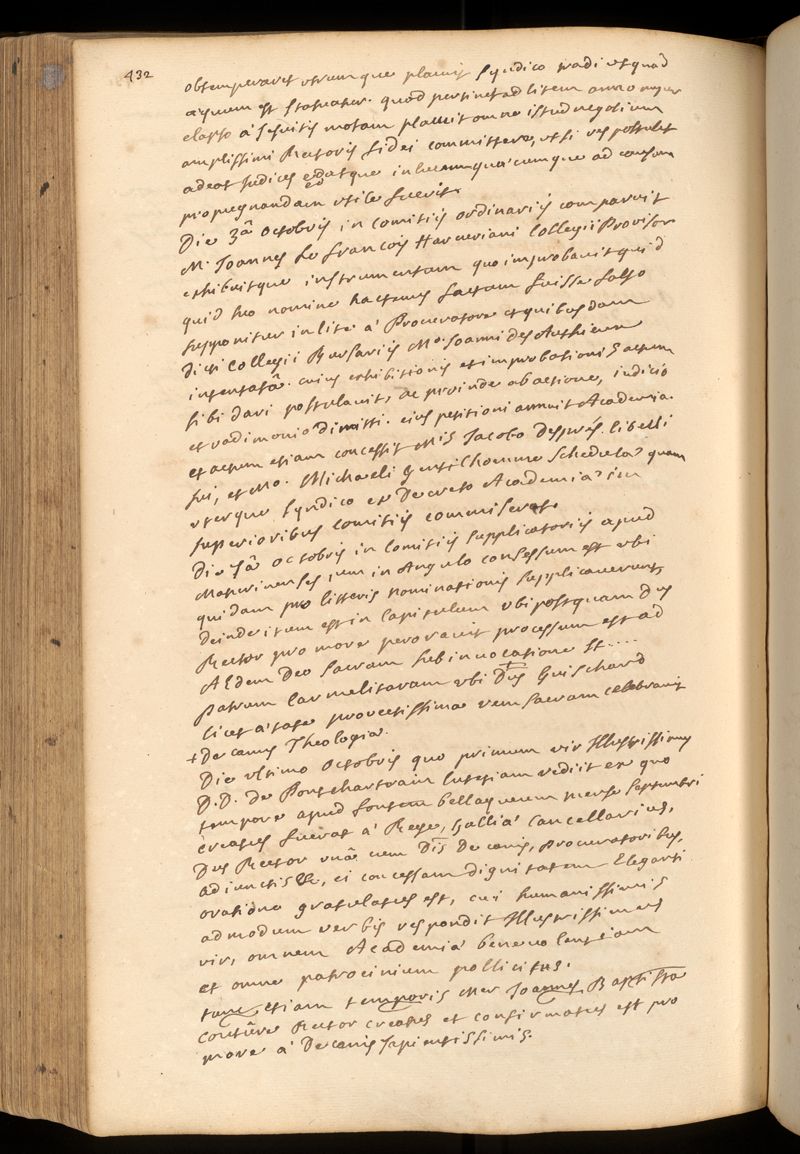 432
obtemperaret utrumque placuit Syndico tradi ut quod
aequum est statuatur. quod pertinet ad litem anno nuper
elapso a Jesuitis motam placuit omne istud negotium
amplissimi Rectoris fidei committere, ut si res postulet
adeat Judices edatque in lucem quaecumque ad causam
propugnandam utile fuerit.
Die 3â octobris in comitiis ordinariis comparuit
M. Joannes Le francois Harcuriani Collegii Provisor
exhibuitque instrumentum quo improbavit quid
quid suo nomine hactenus factum fuisse falso
supponitur in lite a Procuratore et quibusdam
dicti Collegii Bursariis Mo. Joanni des Authieux
intentatâ. cuius exhibitionis et improbationis actum
sibi dari postulavit, ac proinde ab actione, iudicio
et vadimonio dimitti. eius petitioni annuit Academia.
et actum etiam concessit Mis Jacobo Desprès libelli
sui, et Mo. Michaeli Gentilhomme Schedulae quam
uterque Syndico ex Decreto Academiae in
superioribus Comitiis commiserat.
Die octobris in Comitiis supplicatoriis apud
Maturinenses, in Angulo consessum est ubi
quidam pro litteris nominationis supplicaverunt,
Deinde itum est in Capitulum ubi postquam Dus
Rector pro more peroravit processum est ad
AEdem Deo sacram sub invocatione St....
patrum Carmelitarum ubi Dus + Guischard
licet aetate provectissima rem sacram celebravit
+ Decanus Theologiae.
Die ultimo Octobris quo primum vir Illustrissimus
D.D. de Pontchartrain Lutetiam rediit ex quo
tempore apud fontem bellaqueum mense septembri
creatus fuerat a Rege, Galliae Cancellarius,
Dus Rector unâ cum Dis Decanis, procuratoribus,
adiunctis &c, ei concessam dignitatem Eleganti
oratione gratulatus est, cui humanissimis
admodum verbis respondit Illustrissimus
vir, omnem Academiae benevolentiam
et omne patrocinium pollicitus.
tunc etiam temporis Mer Joannes Baptista
Couture Rector creatus et confirmatus est pro
more a Decanis sapientissimis.